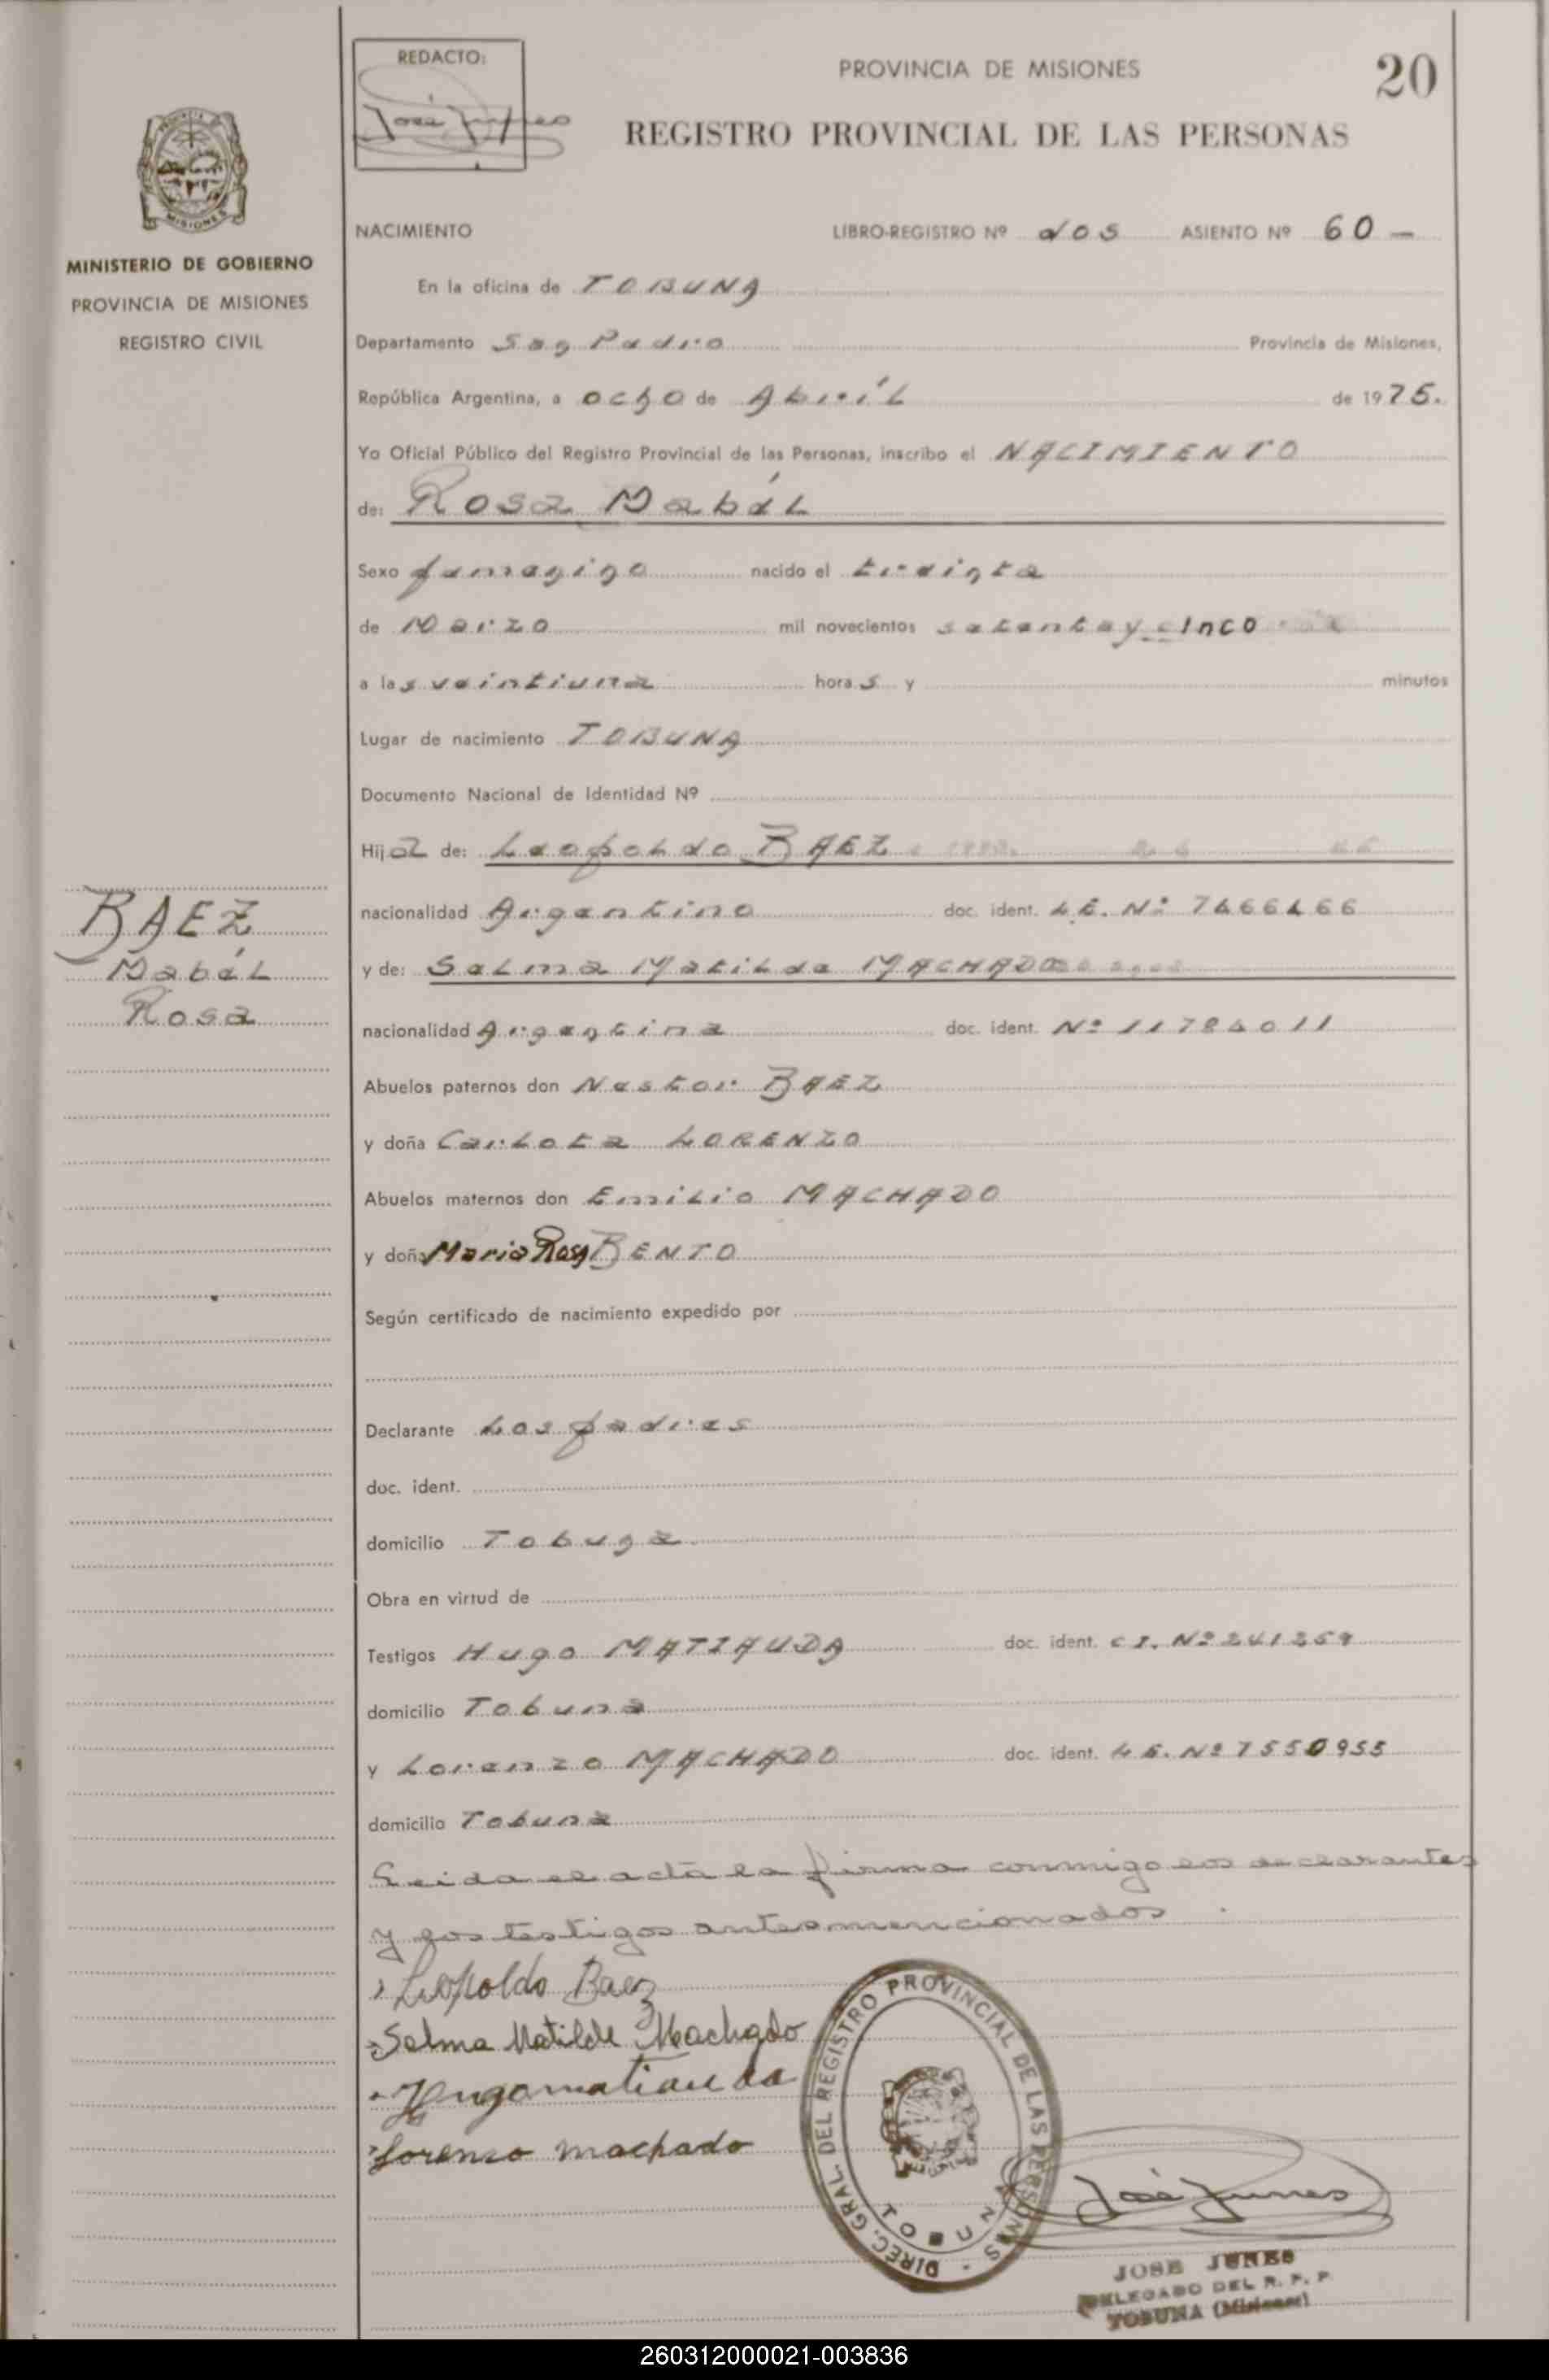 REDACTO:
PROVINCIA DE MISIONES
20
REGISTRO PROVINCIAL DE LAS PERSONAS
MISIONES
MINISTERIO DE GOBIERNO
PROVINCIA DE MISIONES
REGISTRO CIVIL
NACIMIENTO LIBRO-REGISTRO Nº dos ASIENTO Nº 60 -
En la oficina de TOBUNA
Departamento San Pedro Provincia de Misiones,
República Argentina, a ocho de Abril de 1975.
Yo Oficial Público del Registro Provincial de las Personas, inscribo el NACIMIENTO
de: Rosa Mabél
Sexo femenino nacido el treinta
de Marzo mil novecientos setenta y cinco
a las veintiuna horas y minutos
Lugar de nacimiento TOBUNA
Documento Nacional de Identidad Nº
Hija de: Leopoldo BAEZ
nacionalidad Argentino doc. ident. L.E. Nº 7466466
y de: Selma Matilde MACHADO
nacionalidad Argentina doc. ident. Nº 11784011
Abuelos paternos don Nestor BAEZ
y doña Carlota LORENZO
Abuelos maternos don Emilio MACHADO
y doña Maria Rosa BENTO
Según certificado de nacimiento expedido por
Declarante Los padres
doc. ident.
domicilio Tobuna
Obra en virtud de
Testigos Hugo MATIAUDA doc. ident. C.I. Nº 241269
domicilio Tobuna
y Lorenzo MACHADO doc. ident. L.E. Nº 7550955
domicilio Tobuna
BAEZ
Mabél
Rosa
Leida el acta la firma conmigo los declarantes
y los testigos antesmencionados.
Leopoldo Baez
Selma Matilde Machado
Hugo matiauda
Lorenso machado
DIREC. GRAL. DEL REGISTRO PROVINCIAL DE LAS PERSONAS
TOBUNA
JOSE JUNES
DELEGADO DEL R. P. P.
TOBUNA (Misiones)
260312000021-003836